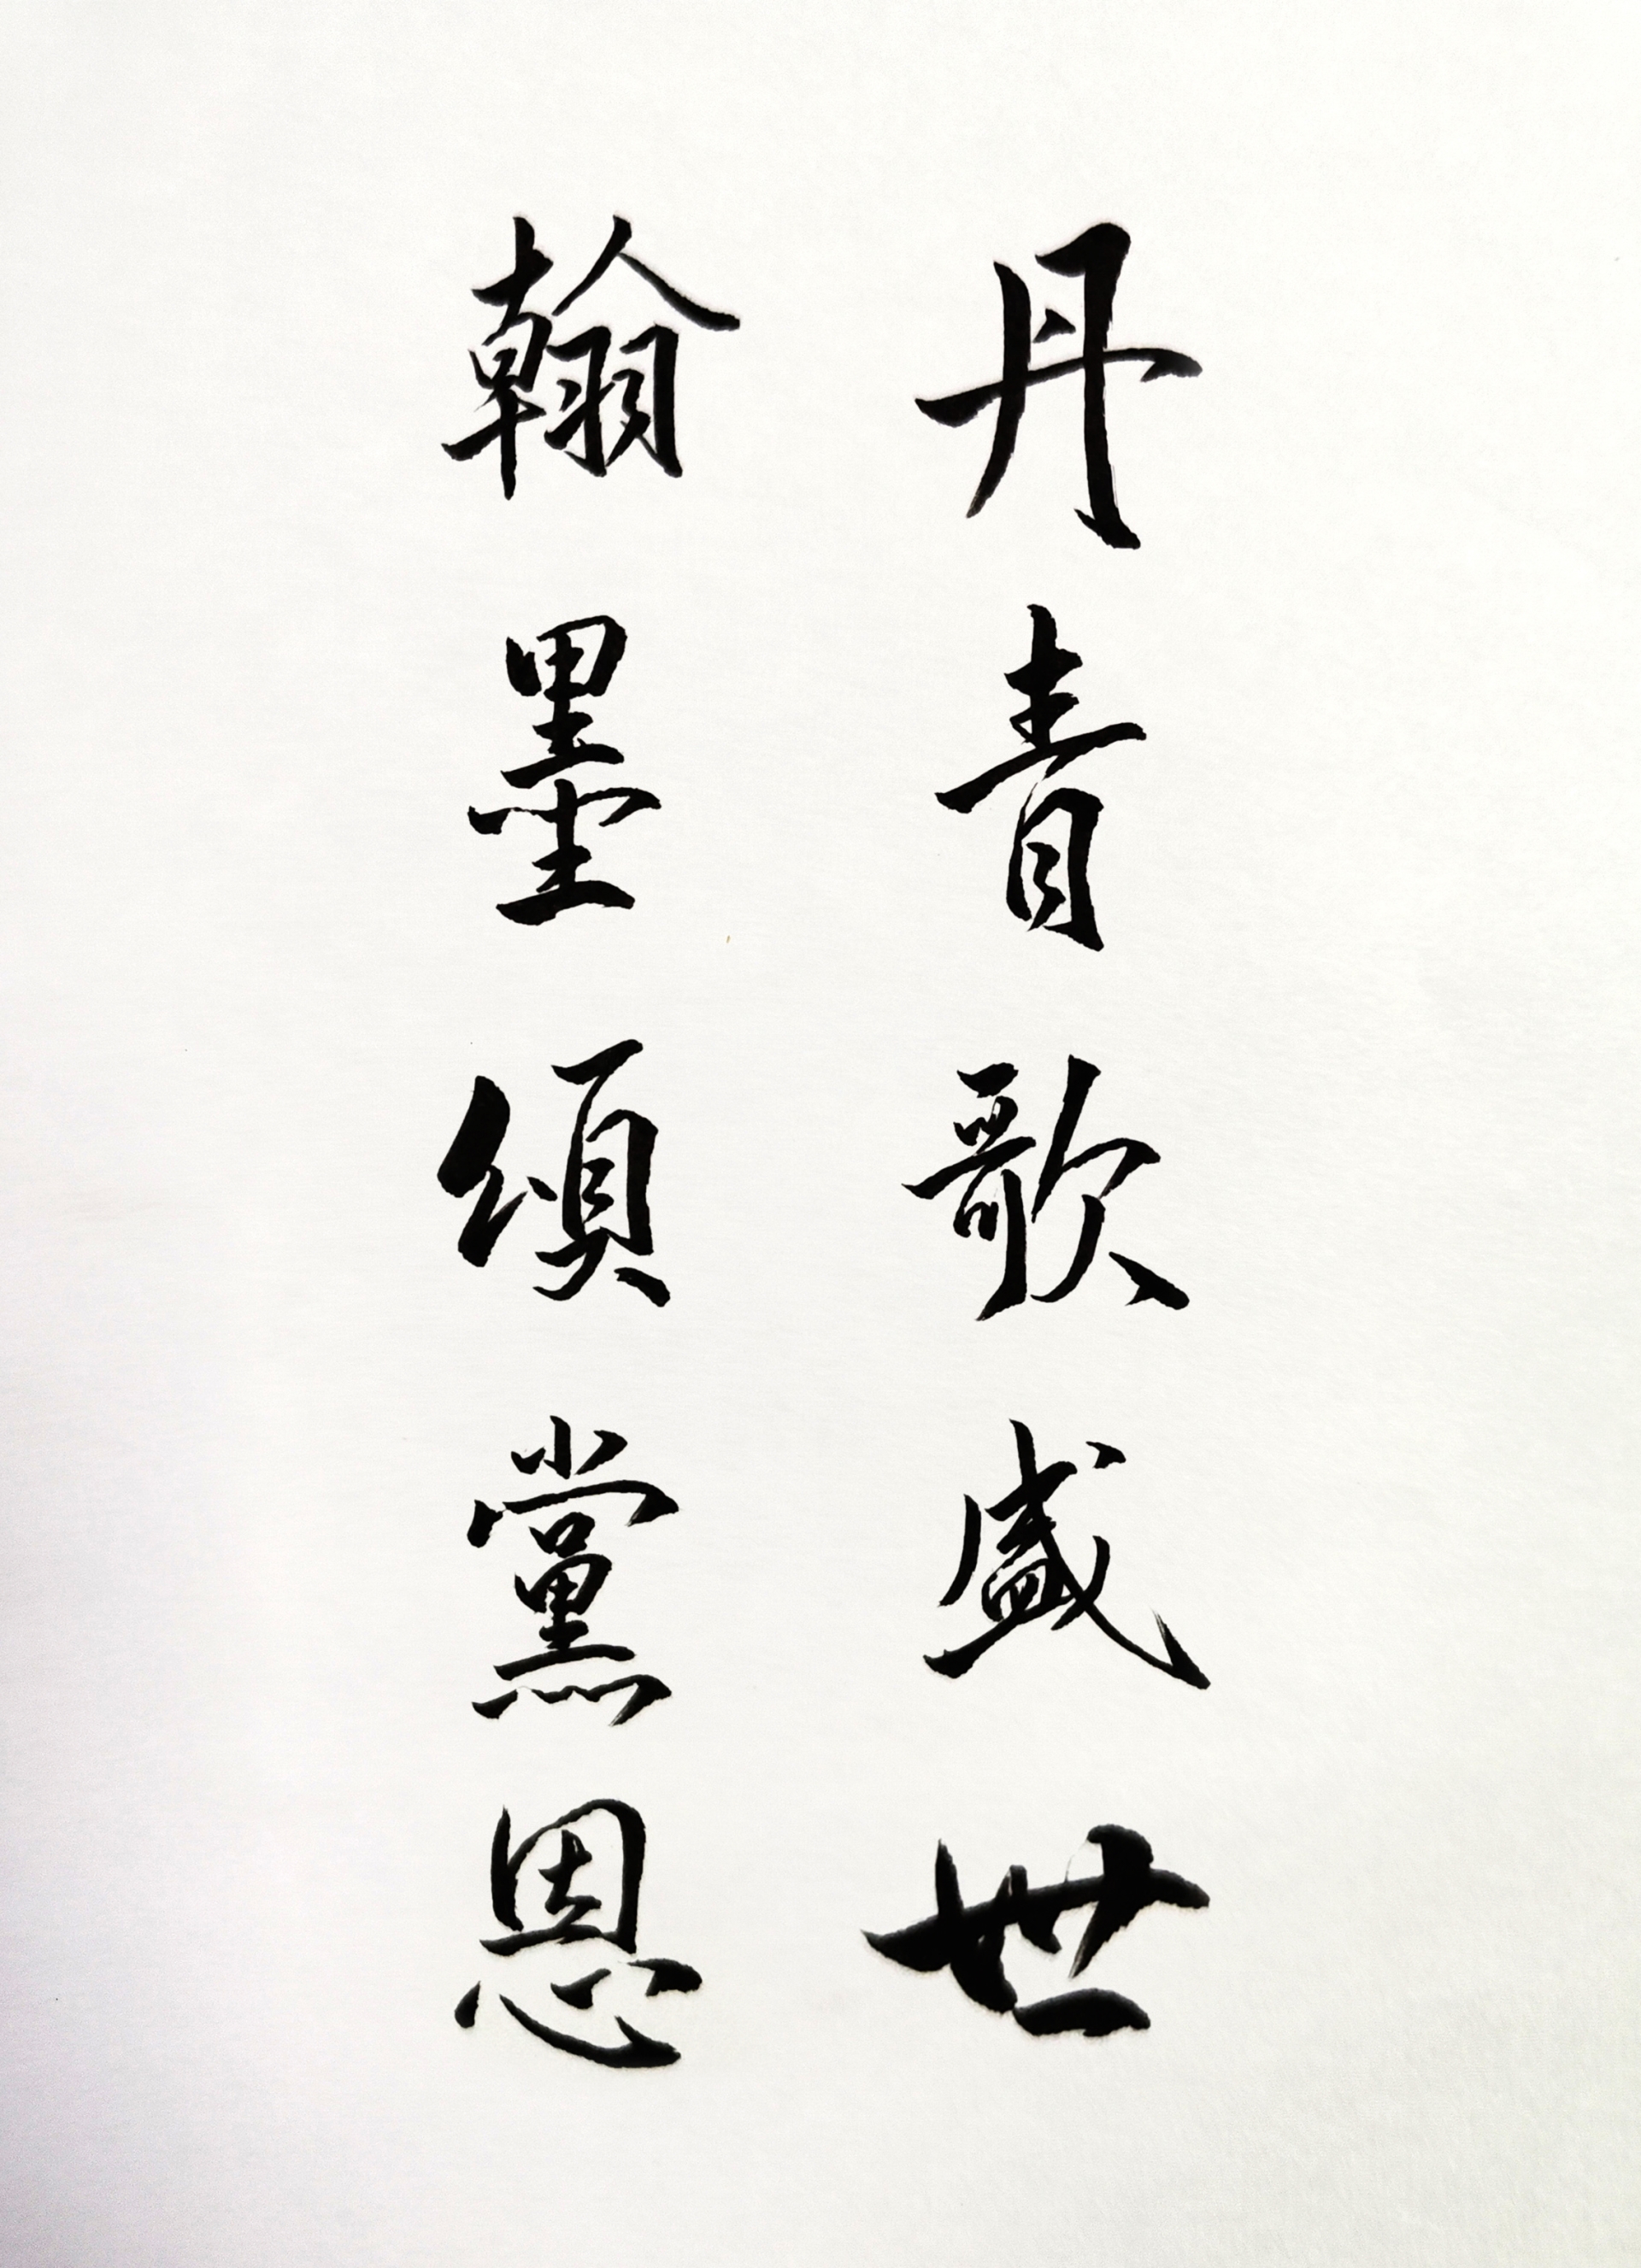 丹青歌盛世
翰墨頌黨恩